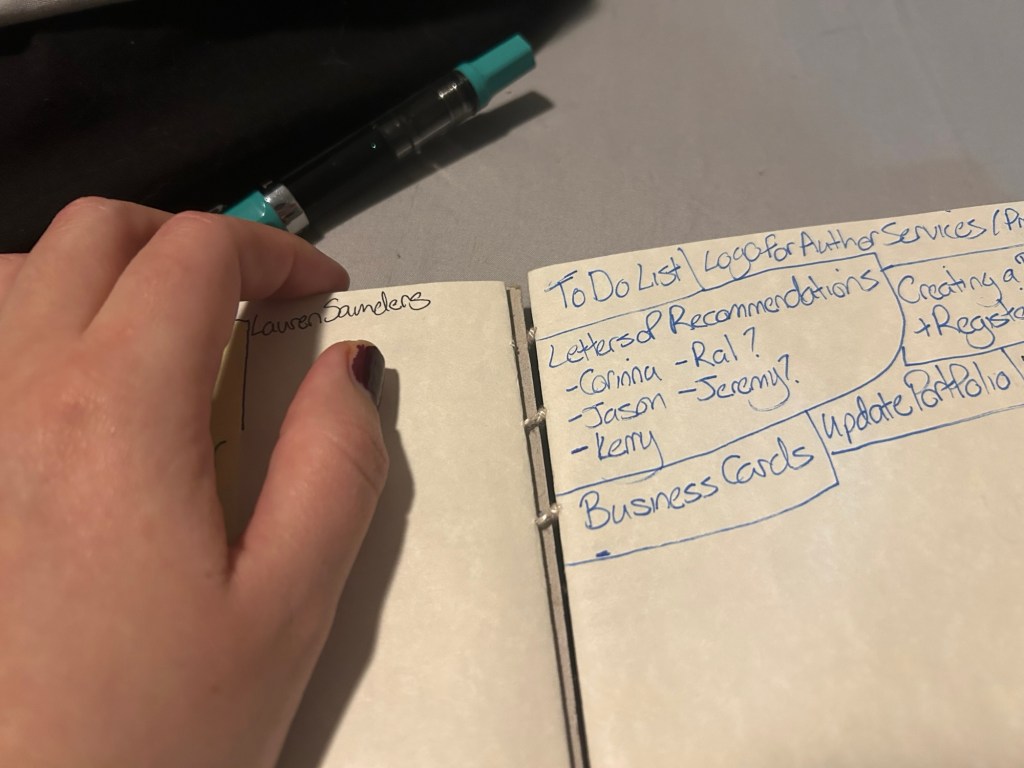 Lauren Saunders
To Do List
Logo for Author Services (Pr
Letters of Recommendations
-Corinna -Ral?
-Jason -Jeremy?
-Kerry
Creating a
+Registe
Business Cards
Update Portfolio
-